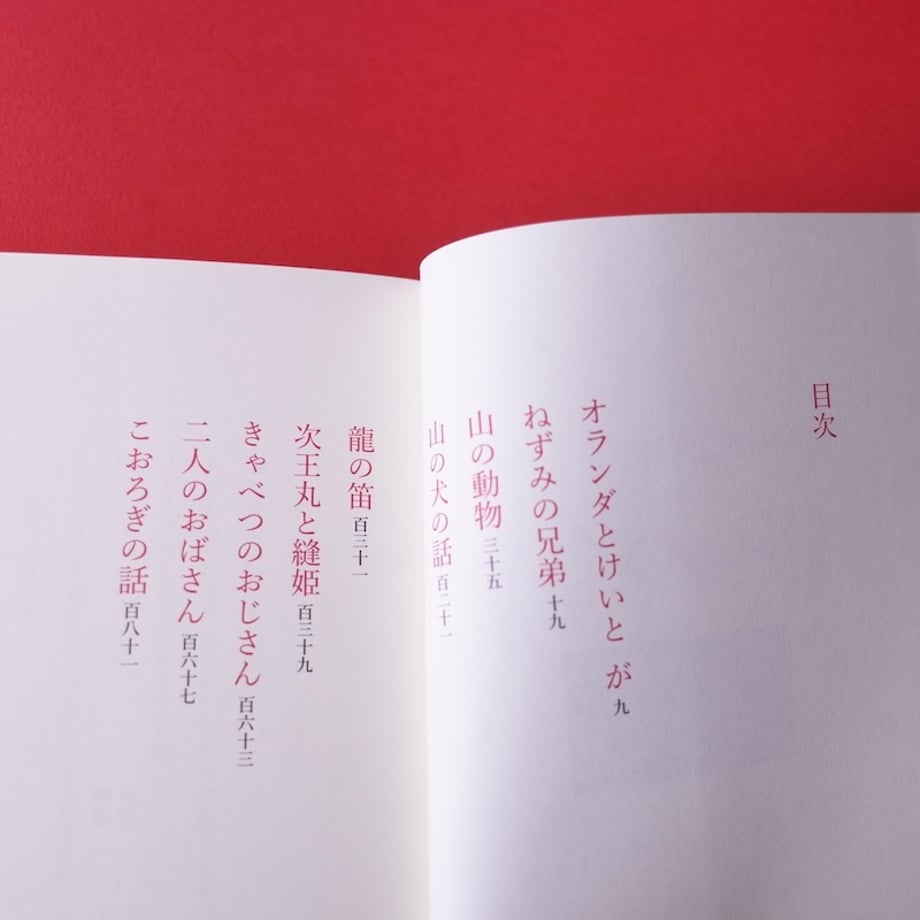 目次
オランダとけいと が 九
ねずみの兄弟 十九
山の動物 三十五
山の犬の話 百二十一
龍の笛 百三十一
次王丸と縫姫 百三十九
きゃべつのおじさん 百六十三
二人のおばさん 百六十七
こおろぎの話 百八十一